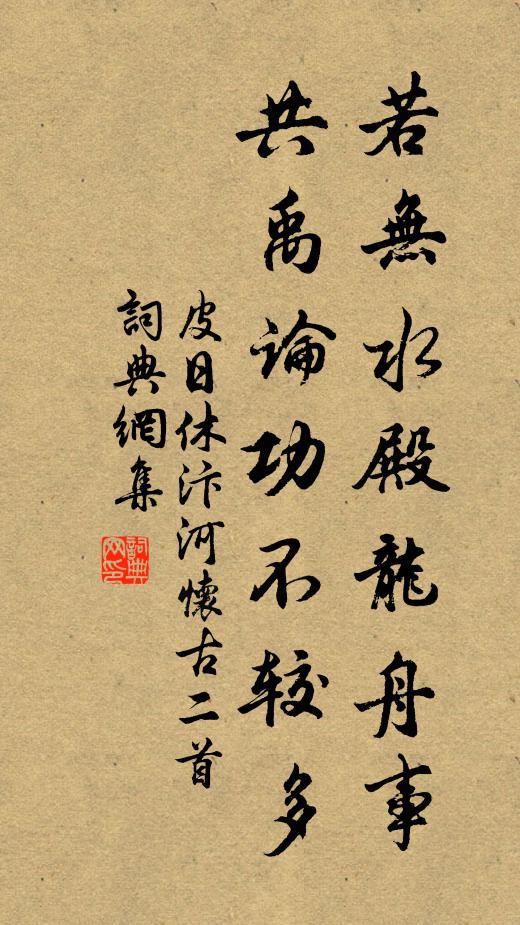 若無水殿龍舟事
共禹論功不較多
皮日休汴河懷古二首
詞典網集
詞典網印